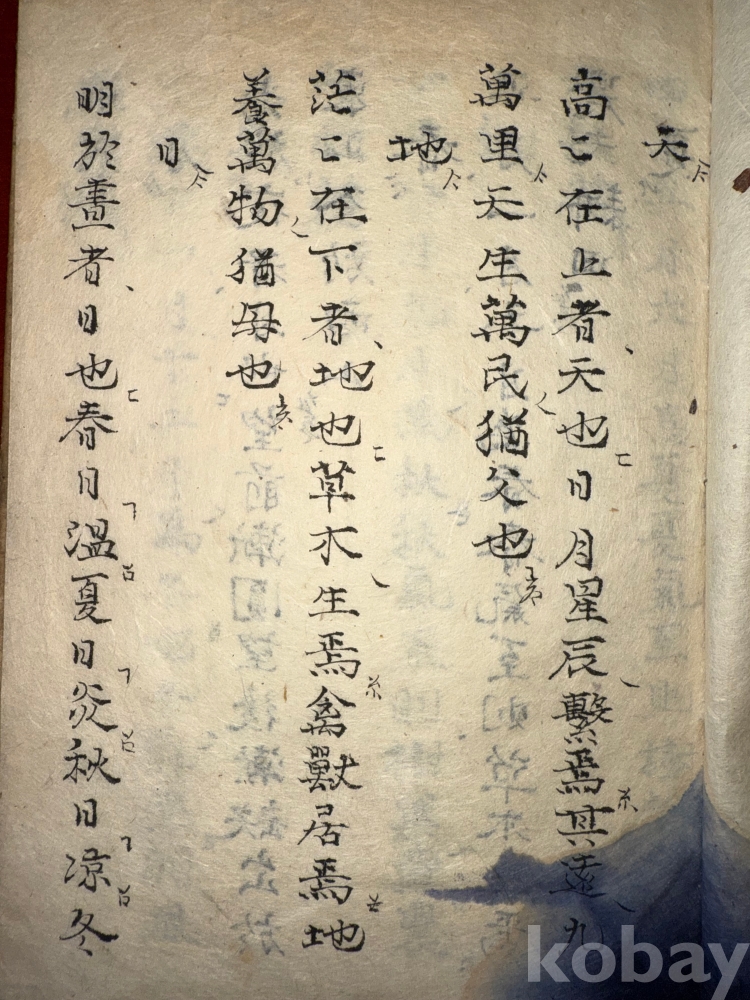 天
高〻在上者天也日月星辰繫焉其遠九
萬里天生萬民猶父也
地
茫〻在下者地也草木生焉禽獸居焉地
養萬物猶母也
日
明於晝者日也春日溫夏日炎秋日凉冬
kobay